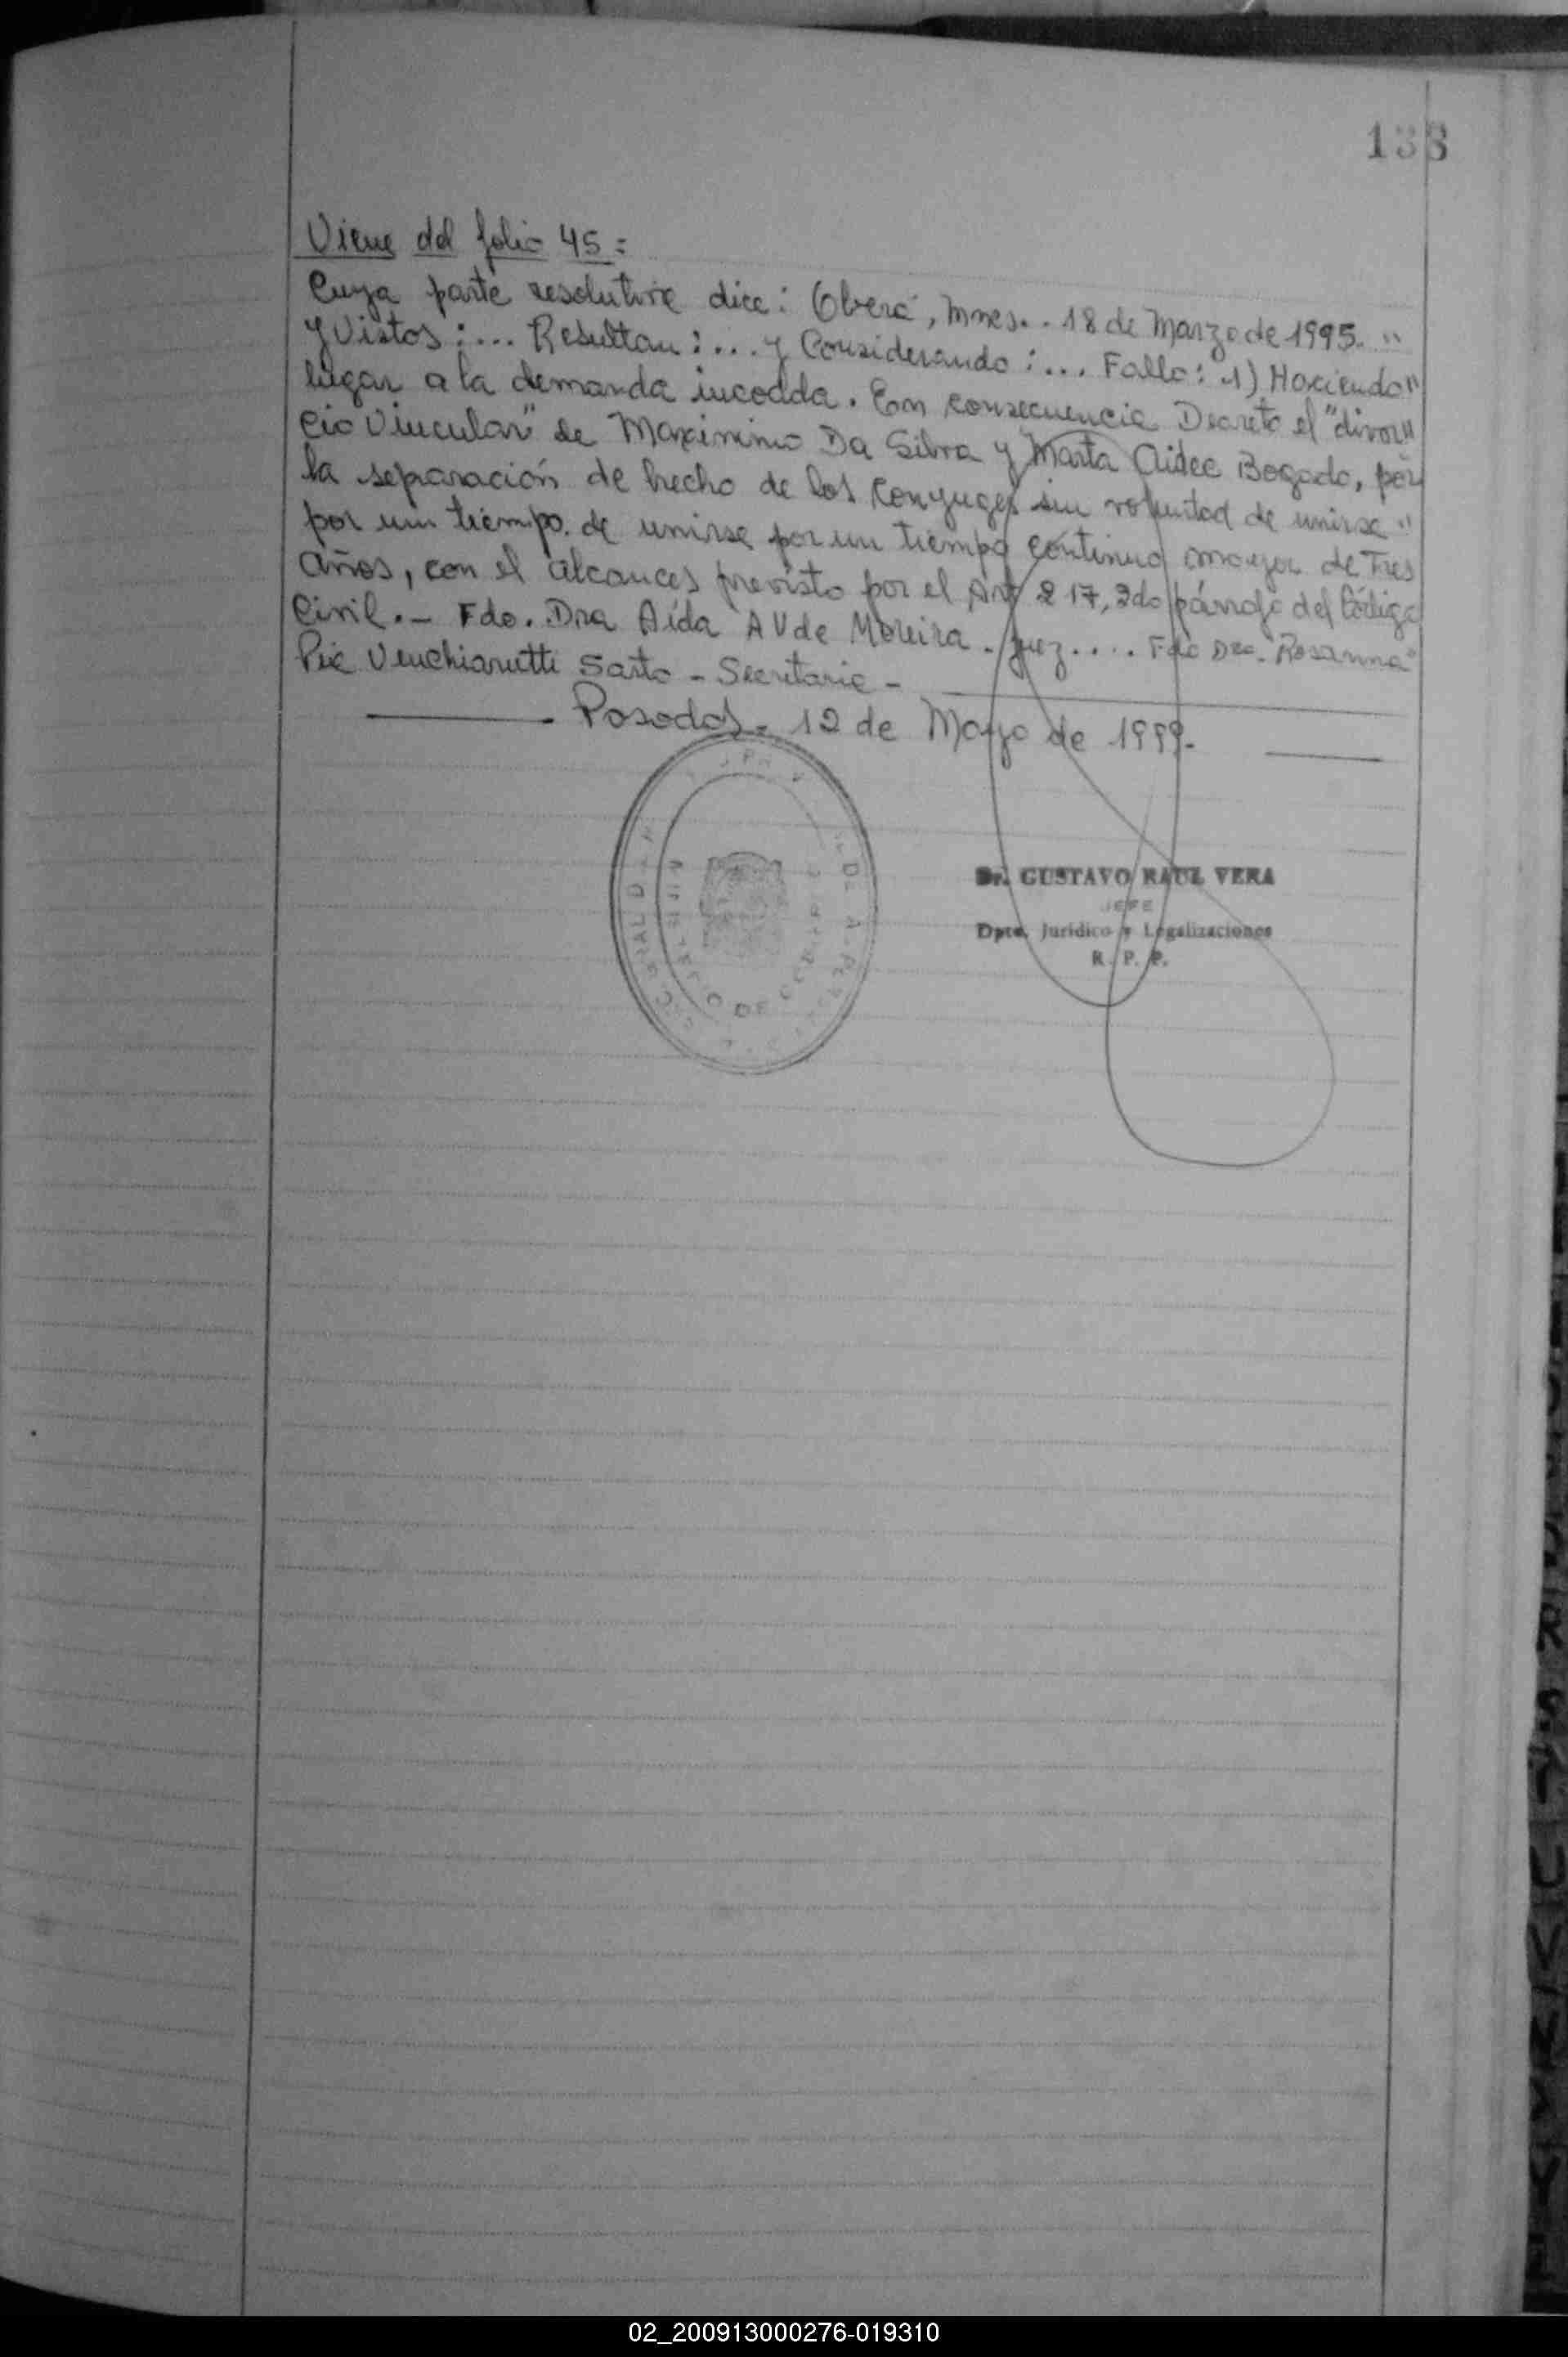 138
Viene del folio 45=
Cuya parte resolutive dice: Oberá, Mnes.. 18 de Marzo de 1995. "
y Vistos:... Resultan:... y Considerando:... Fallo: 1) Haciendo"
lugar a la demanda incodda. En consecuencia Decreto el "divor"
cio Vincular" de Maximino Da Silva y Marta Aidee Bogado, por
la separación de hecho de los Conyuges sin voluntad de unirse "
por un tiempo. de unirse por un tiempo continuo mayor de Tres
Años, con el alcances previsto por el Art 217, 2do párrafo del Código
Civil.- Fdo. Dra Aída AV de Moreira. Juez.... Fdo Dra. Rosanna"
Pia Venchiarutti Sarto - Secretaria -
Posadas. 12 de Mayo de 1999.
Dr. GUSTAVO RAUL VERA
JEFE
Dpto. Jurídico y Legalizaciones
R. P. P.
02_200913000276-019310